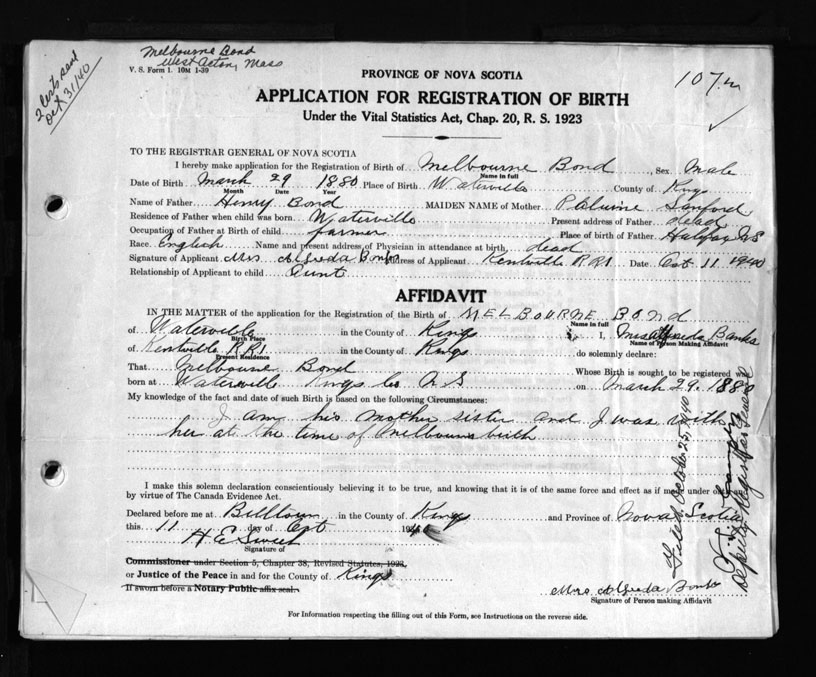 Melbourne Bond
West Acton, Mass
V. S. Form 1. 10M 1-39
2 certs sent
Oct 31/40
107
PROVINCE OF NOVA SCOTIA
APPLICATION FOR REGISTRATION OF BIRTH
Under the Vital Statistics Act, Chap. 20, R. S. 1923
TO THE REGISTRAR GENERAL OF NOVA SCOTIA
I hereby make application for the Registration of Birth of Melbourne Bond Sex Male
Name in full
Date of Birth March 29 1880 Place of Birth Waterville County of Kings
Month Date Year
Name of Father Henry Bond MAIDEN NAME of Mother Sanford
Residence of Father when child was born Waterville Present address of Father dead
Occupation of Father at Birth of child farmer Place of birth of Father Halifax NS
Race English Name and present address of Physician in attendance at birth, dead
Signature of Applicant Mrs Alfreda Banks Address of Applicant Kentville RR1 Date Oct 11 1940
Relationship of Applicant to child Aunt
AFFIDAVIT
IN THE MATTER of the application for the Registration of Birth of MELBOURNE BOND
Name in full
of Waterville in the County of Kings I, Mrs Alfreda Banks
Birth Place Name of Person Making Affidavit
of Kentville RR1 in the County of Kings do solemnly declare:
Present Residence
That Melbourne Bond Whose Birth is sought to be registered was
born at Waterville Kings Co N S on March 29. 1880
My knowledge of the fact and date of such Birth is based on the following Circumstances:
I am his mother sister and I was with
her at the time of Melbourns birth
I make this solemn declaration conscientiously believing it to be true, and knowing that it is of the same force and effect as if made under oath
by virtue of The Canada Evidence Act.
Declared before me at Billtown in the County of Kings and Province of Nova Scotia
this 11 day of Oct 1940
H E Sweet
Signature of
Commissioner under Section 5, Chapter 38, Revised Statutes, 1923,
or Justice of the Peace in and for the County of Kings
If sworn before a Notary Public affix seal.
Mrs Alfreda Banks
Signature of Person making Affidavit
Filed October 25, 1940
Deputy Registrar General
For Information respecting the filling out of this Form, see Instructions on the reverse side.